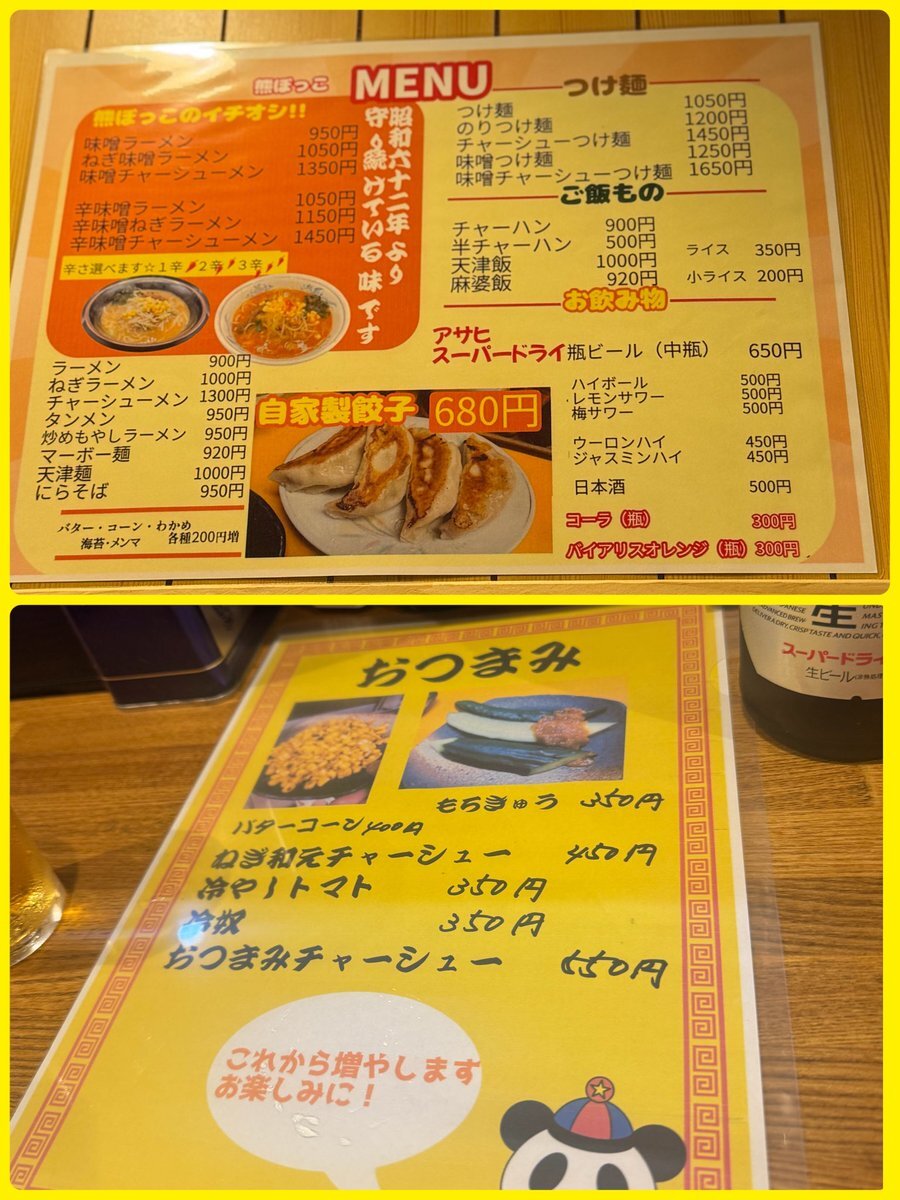 熊ぼっこ MENU
熊ぼっこのイチオシ!!
味噌ラーメン 950円
ねぎ味噌ラーメン 1050円
味噌チャーシューメン 1350円
辛味噌ラーメン 1050円
辛味噌ねぎラーメン 1150円
辛味噌チャーシューメン 1450円
辛さ選べます☆1辛 2辛 3辛
昭和六十二年より
守り続けている味です
ラーメン 900円
ねぎラーメン 1000円
チャーシューメン 1300円
タンメン 950円
炒めもやしラーメン 950円
マーボー麺 920円
天津麺 1000円
にらそば 950円
バター・コーン・わかめ
海苔・メンマ 各種200円増
自家製餃子 680円
つけ麺
つけ麺 1050円
のりつけ麺 1200円
チャーシューつけ麺 1450円
味噌つけ麺 1250円
味噌チャーシューつけ麺 1650円
ご飯もの
チャーハン 900円
半チャーハン 500円
天津飯 1000円
麻婆飯 920円
ライス 350円
小ライス 200円
お飲み物
アサヒ
スーパードライ瓶ビール（中瓶） 650円
ハイボール 500円
レモンサワー 500円
梅サワー 500円
ウーロンハイ 450円
ジャスミンハイ 450円
日本酒 500円
コーラ（瓶） 300円
バイアリスオレンジ（瓶） 300円
おつまみ
もろきゅう 350円
バターコーン 400円
ねぎ和元チャーシュー 450円
冷やしトマト 350円
冷奴 350円
おつまみチャーシュー 550円
これから増やします
お楽しみに！
生
DELIVER A DRY, CRISP TASTE AND QUICK,
スーパードライ
生ビール